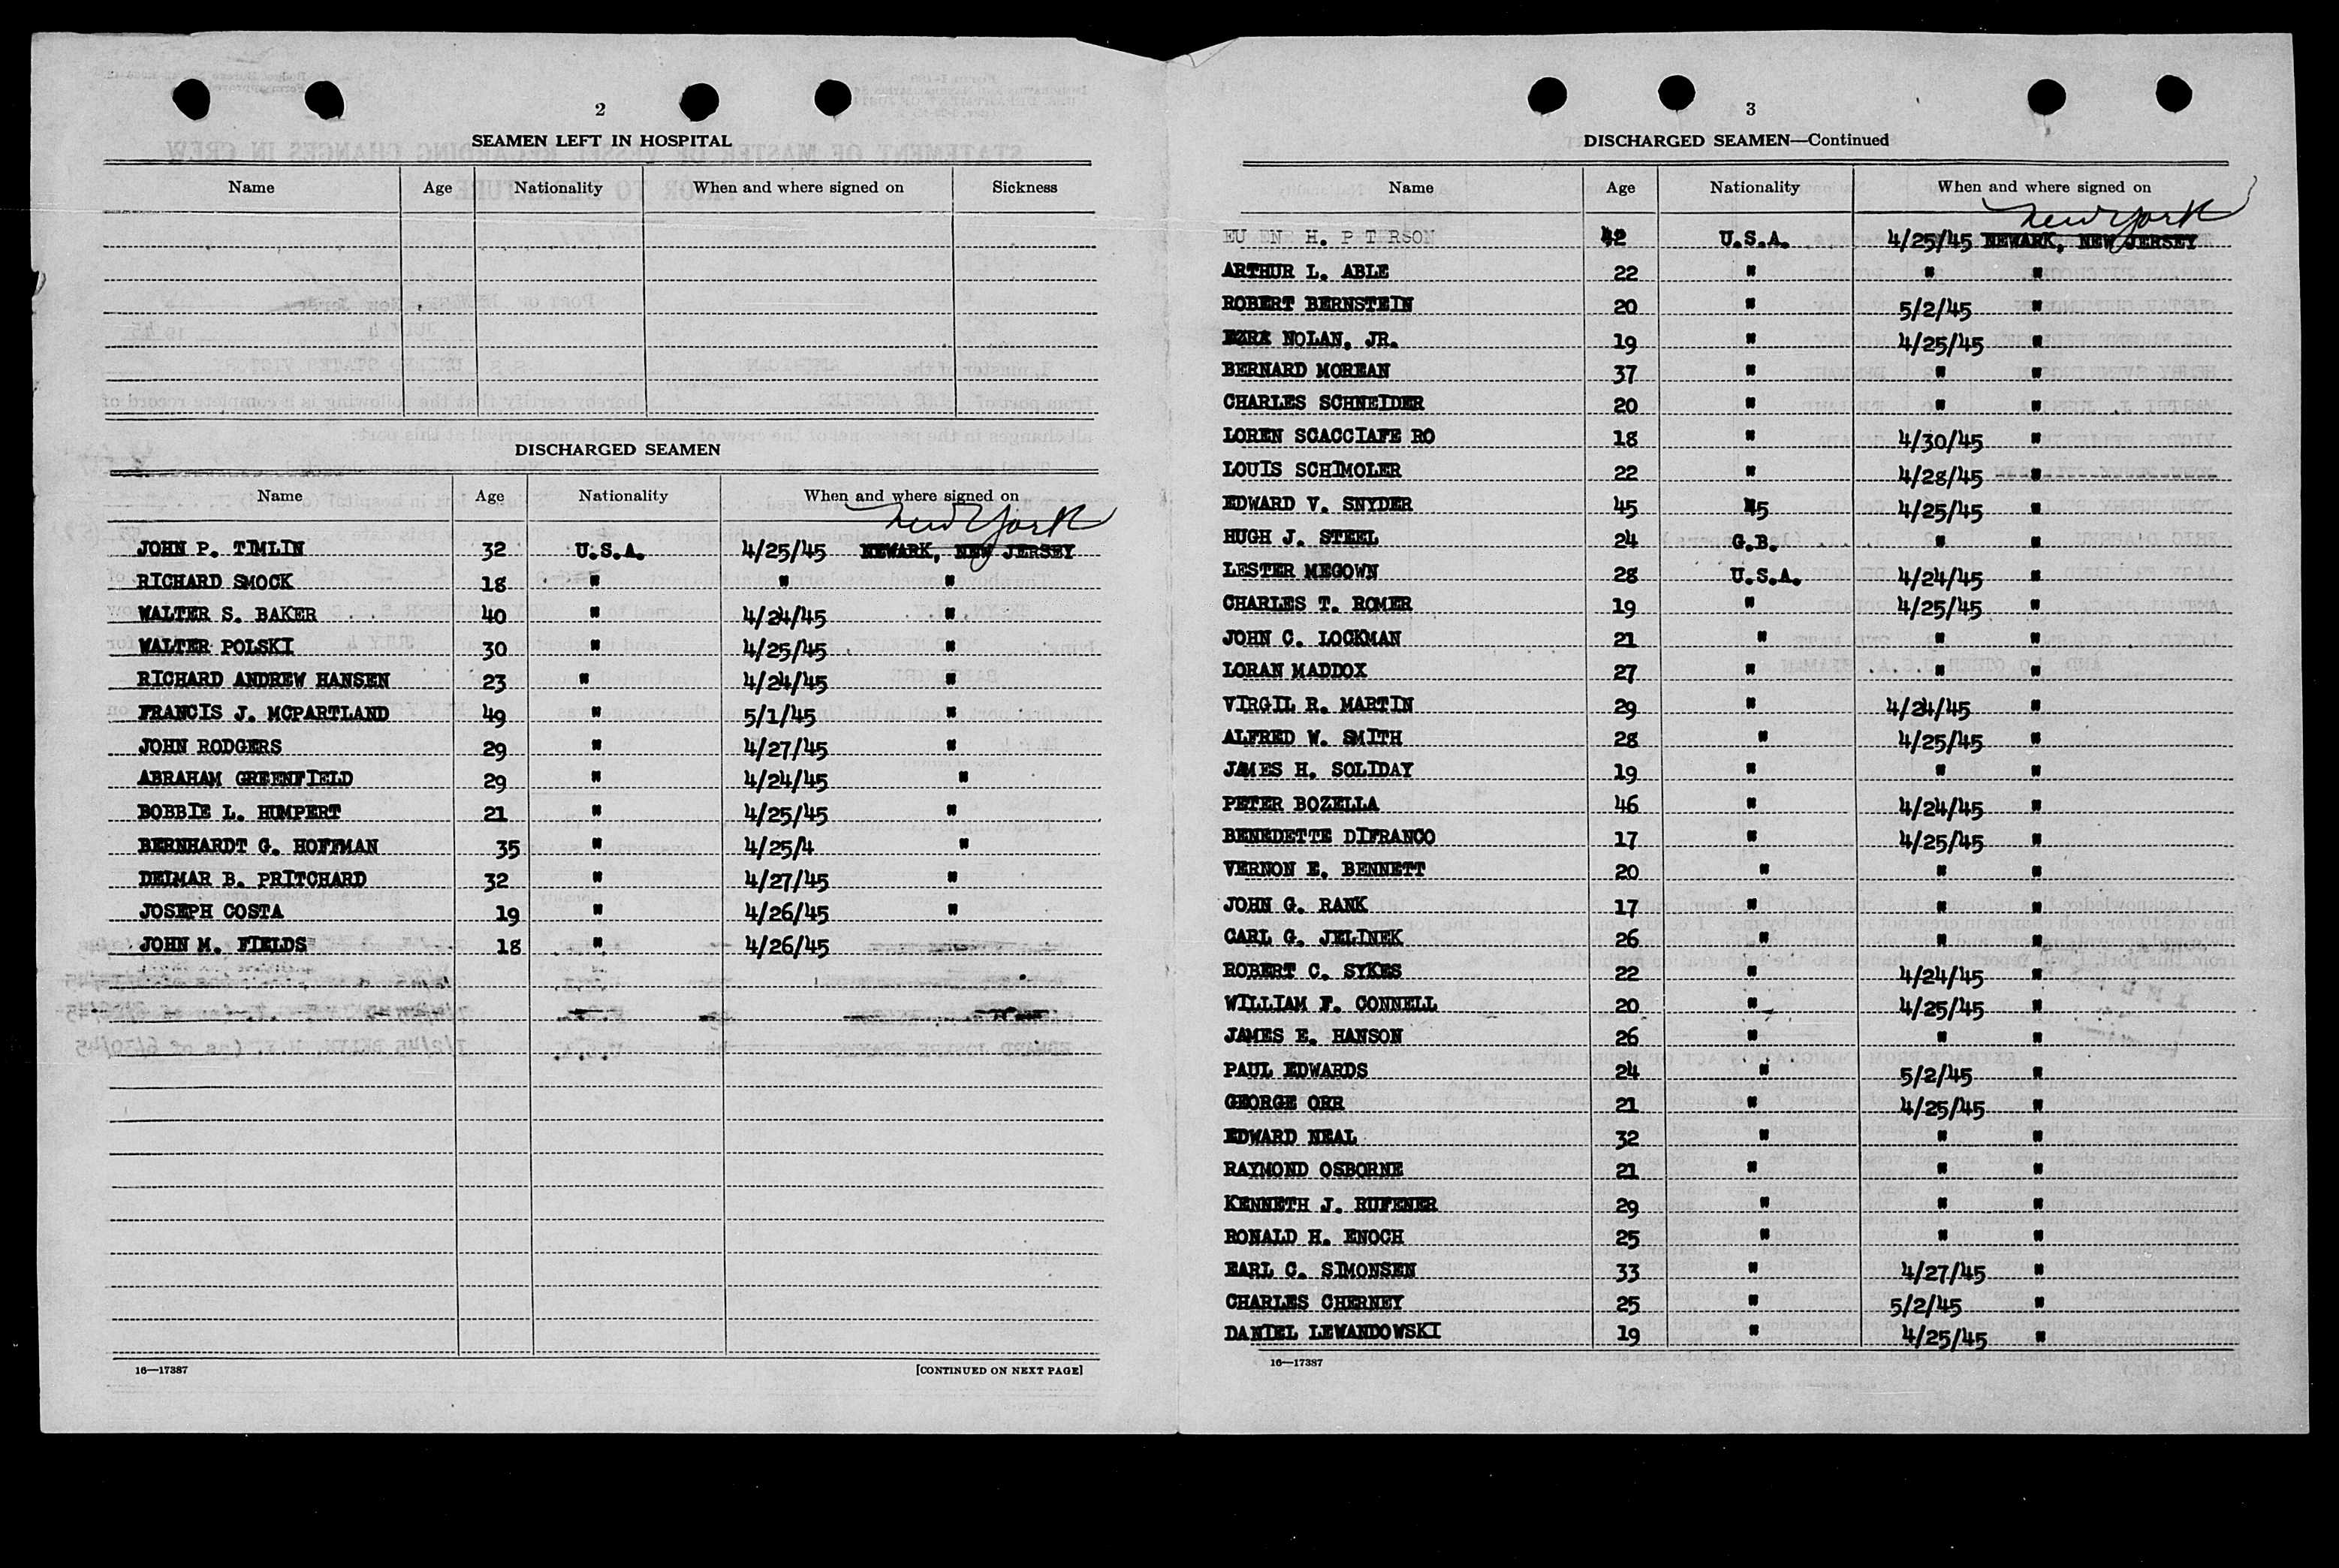 2
SEAMEN LEFT IN HOSPITAL
Name Age Nationality When and where signed on Sickness
DISCHARGED SEAMEN
Name Age Nationality When and where signed on
New York
JOHN P. TIMLIN 32 U.S.A. 4/25/45 NEWARK, NEW JERSEY
RICHARD SMOCK 18 " " "
WALTER S. BAKER 40 " 4/24/45 "
WALTER POLSKI 30 " 4/25/45 "
RICHARD ANDREW HANSEN 23 " 4/24/45 "
FRANCIS J. MCPARTLAND 49 " 5/1/45 "
JOHN RODGERS 29 " 4/27/45 "
ABRAHAM GREENFIELD 29 " 4/24/45 "
BOBBIE L. HUMPERT 21 " 4/25/45 "
BERNHARDT G. HOFFMAN 35 " 4/25/4 "
DELMAR B. PRITCHARD 32 " 4/27/45 "
JOSEPH COSTA 19 " 4/26/45 "
JOHN M. FIELDS 18 " 4/26/45
16—17387 [CONTINUED ON NEXT PAGE]
3
DISCHARGED SEAMEN—Continued
Name Age Nationality When and where signed on
New York
EU EN H. P T RSON 42 U.S.A. 4/25/45 NEWARK, NEW JERSEY
ARTHUR L. ABLE 22 " " "
ROBERT BERNSTEIN 20 " 5/2/45 "
EZRA NOLAN, JR. 19 " 4/25/45 "
BERNARD MOREAN 37 " " "
CHARLES SCHNEIDER 20 " " "
LOREN SCACCIAFE RO 18 " 4/30/45 "
LOUIS SCHIMOLER 22 " 4/28/45 "
EDWARD V. SNYDER 45 45 4/25/45 "
HUGH J. STEEL 24 G.B. " "
LESTER MEGOWN 28 U.S.A. 4/24/45 "
CHARLES T. ROMER 19 " 4/25/45 "
JOHN C. LOCKMAN 21 " " "
LORAN MADDOX 27 " " "
VIRGIL R. MARTIN 29 " 4/24/45 "
ALFRED W. SMITH 28 " 4/25/45 "
JAMES H. SOLIDAY 19 " " "
PETER BOZELLA 46 " 4/24/45 "
BENEDETTE DIFRANCO 17 " 4/25/45 "
VERNON E. BENNETT 20 " " "
JOHN G. RANK 17 " " "
CARL G. JELINEK 26 " " "
ROBERT C. SYKES 22 " 4/24/45 "
WILLIAM F. CONNELL 20 " 4/25/45 "
JAMES E. HANSON 26 " " "
PAUL EDWARDS 24 " 5/2/45 "
GEORGE ORR 21 " 4/25/45 "
EDWARD NEAL 32 " " "
RAYMOND OSBORNE 21 " " "
KENNETH J. RUFENER 29 " " "
RONALD H. ENOCH 25 " " "
EARL C. SIMONSEN 33 " 4/27/45 "
CHARLES CHERNEY 25 " 5/2/45 "
DANIEL LEWANDOWSKI 19 " 4/25/45 "
16—17387